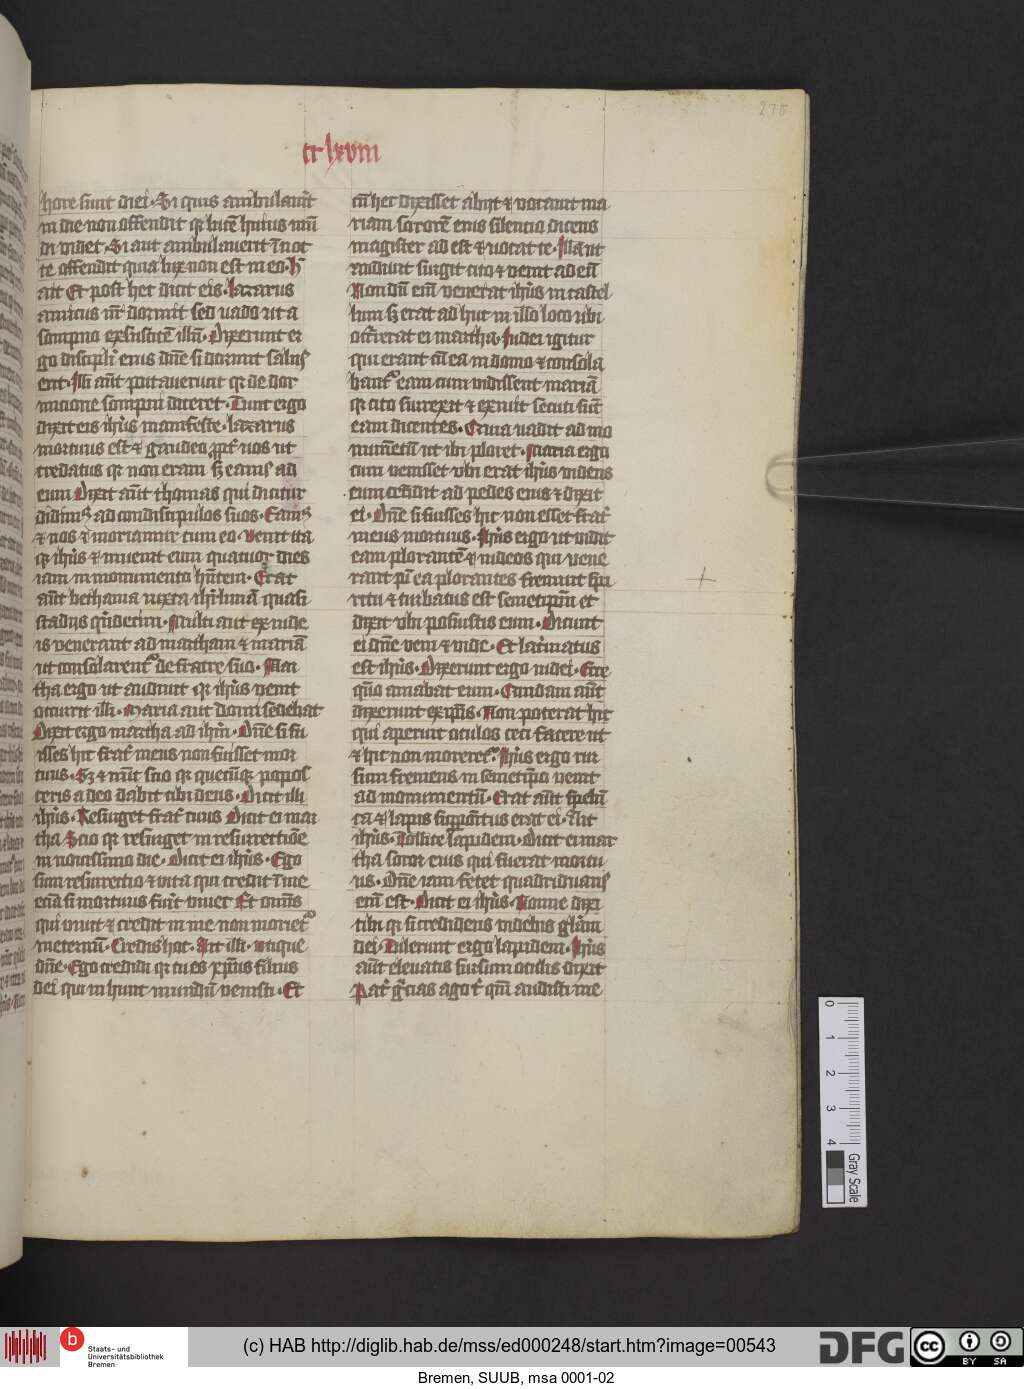 270
cclxviii
hore sunt diei. Si quis ambulauit
in die non offendit qr lucē huius mū
di uidet. Si aut ambulauerit ī noc
te offendit quia lux non est in eo. h
ait Et post hec dicit eis. lazarus
amicus nr̄ dormit sed uado ut a
sompno exsuscitē illū. Dixerunt er
go discipli eius dn̄e si dormit saluꝰ
erit. Illi aūt putauerunt qr de dor
micione sompni diceret. Tunc ergo
dixit eis ih̄us manifeste. lazarus
mortuus est & gaudeo ꝓpt̄ uos ut
credatis qr non eram ibi sꝫ eamꝰ ad
eum Dixit aūt thomas qui dicitur
didimꝰ ad condiscipulos suos. Eamꝰ
& nos ⁊ moriamur cum eo. Venit ita
qꝫ ih̄us & inuenit eum quatuor dies
iam in monumento hn̄tem. Erat
aūt bethania iuxta ih̄rlimā quasi
stadijs qͥndecim. Multi aut ex iude
is uenerant ad martham & mariā
ut consolarent᷑ de fratre suo. Mar
tha ergo ut audiuit qr ih̄us uenit
occurrit illi. Maria aut domi sedebat
Dixit ergo martha ad ih̄m. Dn̄e si fu
isses hic frat̄ meus non fuisset mor
tuus. Sꝫ & nūc scio qr quecūqꝫ popos
ceris a deo dabit tibi deus. Dicit illi
ih̄us. Resurget frat̄ tuus Dicit ei mar
tha Scio qr resurget in resurrectiōe
in nouissimo die. Dicit ei ih̄us. Ego
sum resurrectio & uita qui credit ī me
eciā si mortuus fuīt uiuet Et omīs
qui uiuit & credit in me non moriet᷑
in eternū. Credis hoc. Ait illi. utique
dn̄e. Ego credidi qr tu es xp̄us filius
dei qui in hunc mundū uenisti. Et
cū hec dixisset abijt & uocauit ma
riam sororē eius silentio dicens
magister ad est & uocat te. Illa ut
audiuit surgit cito & uenit ad eū
Non dū eī uenerat ih̄us in castel
lum sꝫ erat ad huc in illo loco ubi
occ̄rerat ei martha. Iudei igitur
qui erant cū ea in domo & consola
bant᷑ eam cum uidissent mariā
qr cito surrexit & exiuit secuti sūt
eam dicentes. Quia uadit ad mo
numētū ut ibi ploret. Maria ergo
cum uenisset ubi erat ih̄us uidens
eum cecidit ad pedes eius & dixit
ei. Dn̄e si fuisses hic non esset frat̄
meus mortuus. Ih̄us ergo ut uidit
eam plorantē & iudeos qui uene
rant cū ea plorantes fremuit spū
ritu & turbatus est semetipm̄ et
dixit ubi posuistis eum. Dicunt
ei dn̄e veni & uide. Et lac̄matus
est ih̄us. Dixerunt ergo iudei. Ecce
quō amabat eum. Quidam aūt
dixerunt ex ip̄is. Non poterat hic
qui aperuit oculos ceci facere ut
& hic non moreret᷑. Ih̄us ergo rur
sum fremens in semetip̄o uenit
ad monumentū. Erat aūt spelū
ca & lapis suppoītus erat ei. Ait
ih̄us. Tollite lapidem. Dicit ei mar
tha soror eius qui fuerat mortu
us. Dn̄e iam fetet quadriduanꝰ
enī est. Dicit ei ih̄us. Nonne dixi
tibi qr si credideris uidebis glām
dei. Tulerunt ergo lapidem. Ih̄us
aūt eleuatis sursum oculis dixit
Pat̄ gr̄cias ago t̄ qm̄ audisti me
0 1 2 3 4
Gray Scale
b Staats- und
Universitätsbibliothek
Bremen
(c) HAB http://diglib.hab.de/mss/ed000248/start.htm?image=00543
DFG
cc BY SA
Bremen, SUUB, msa 0001-02